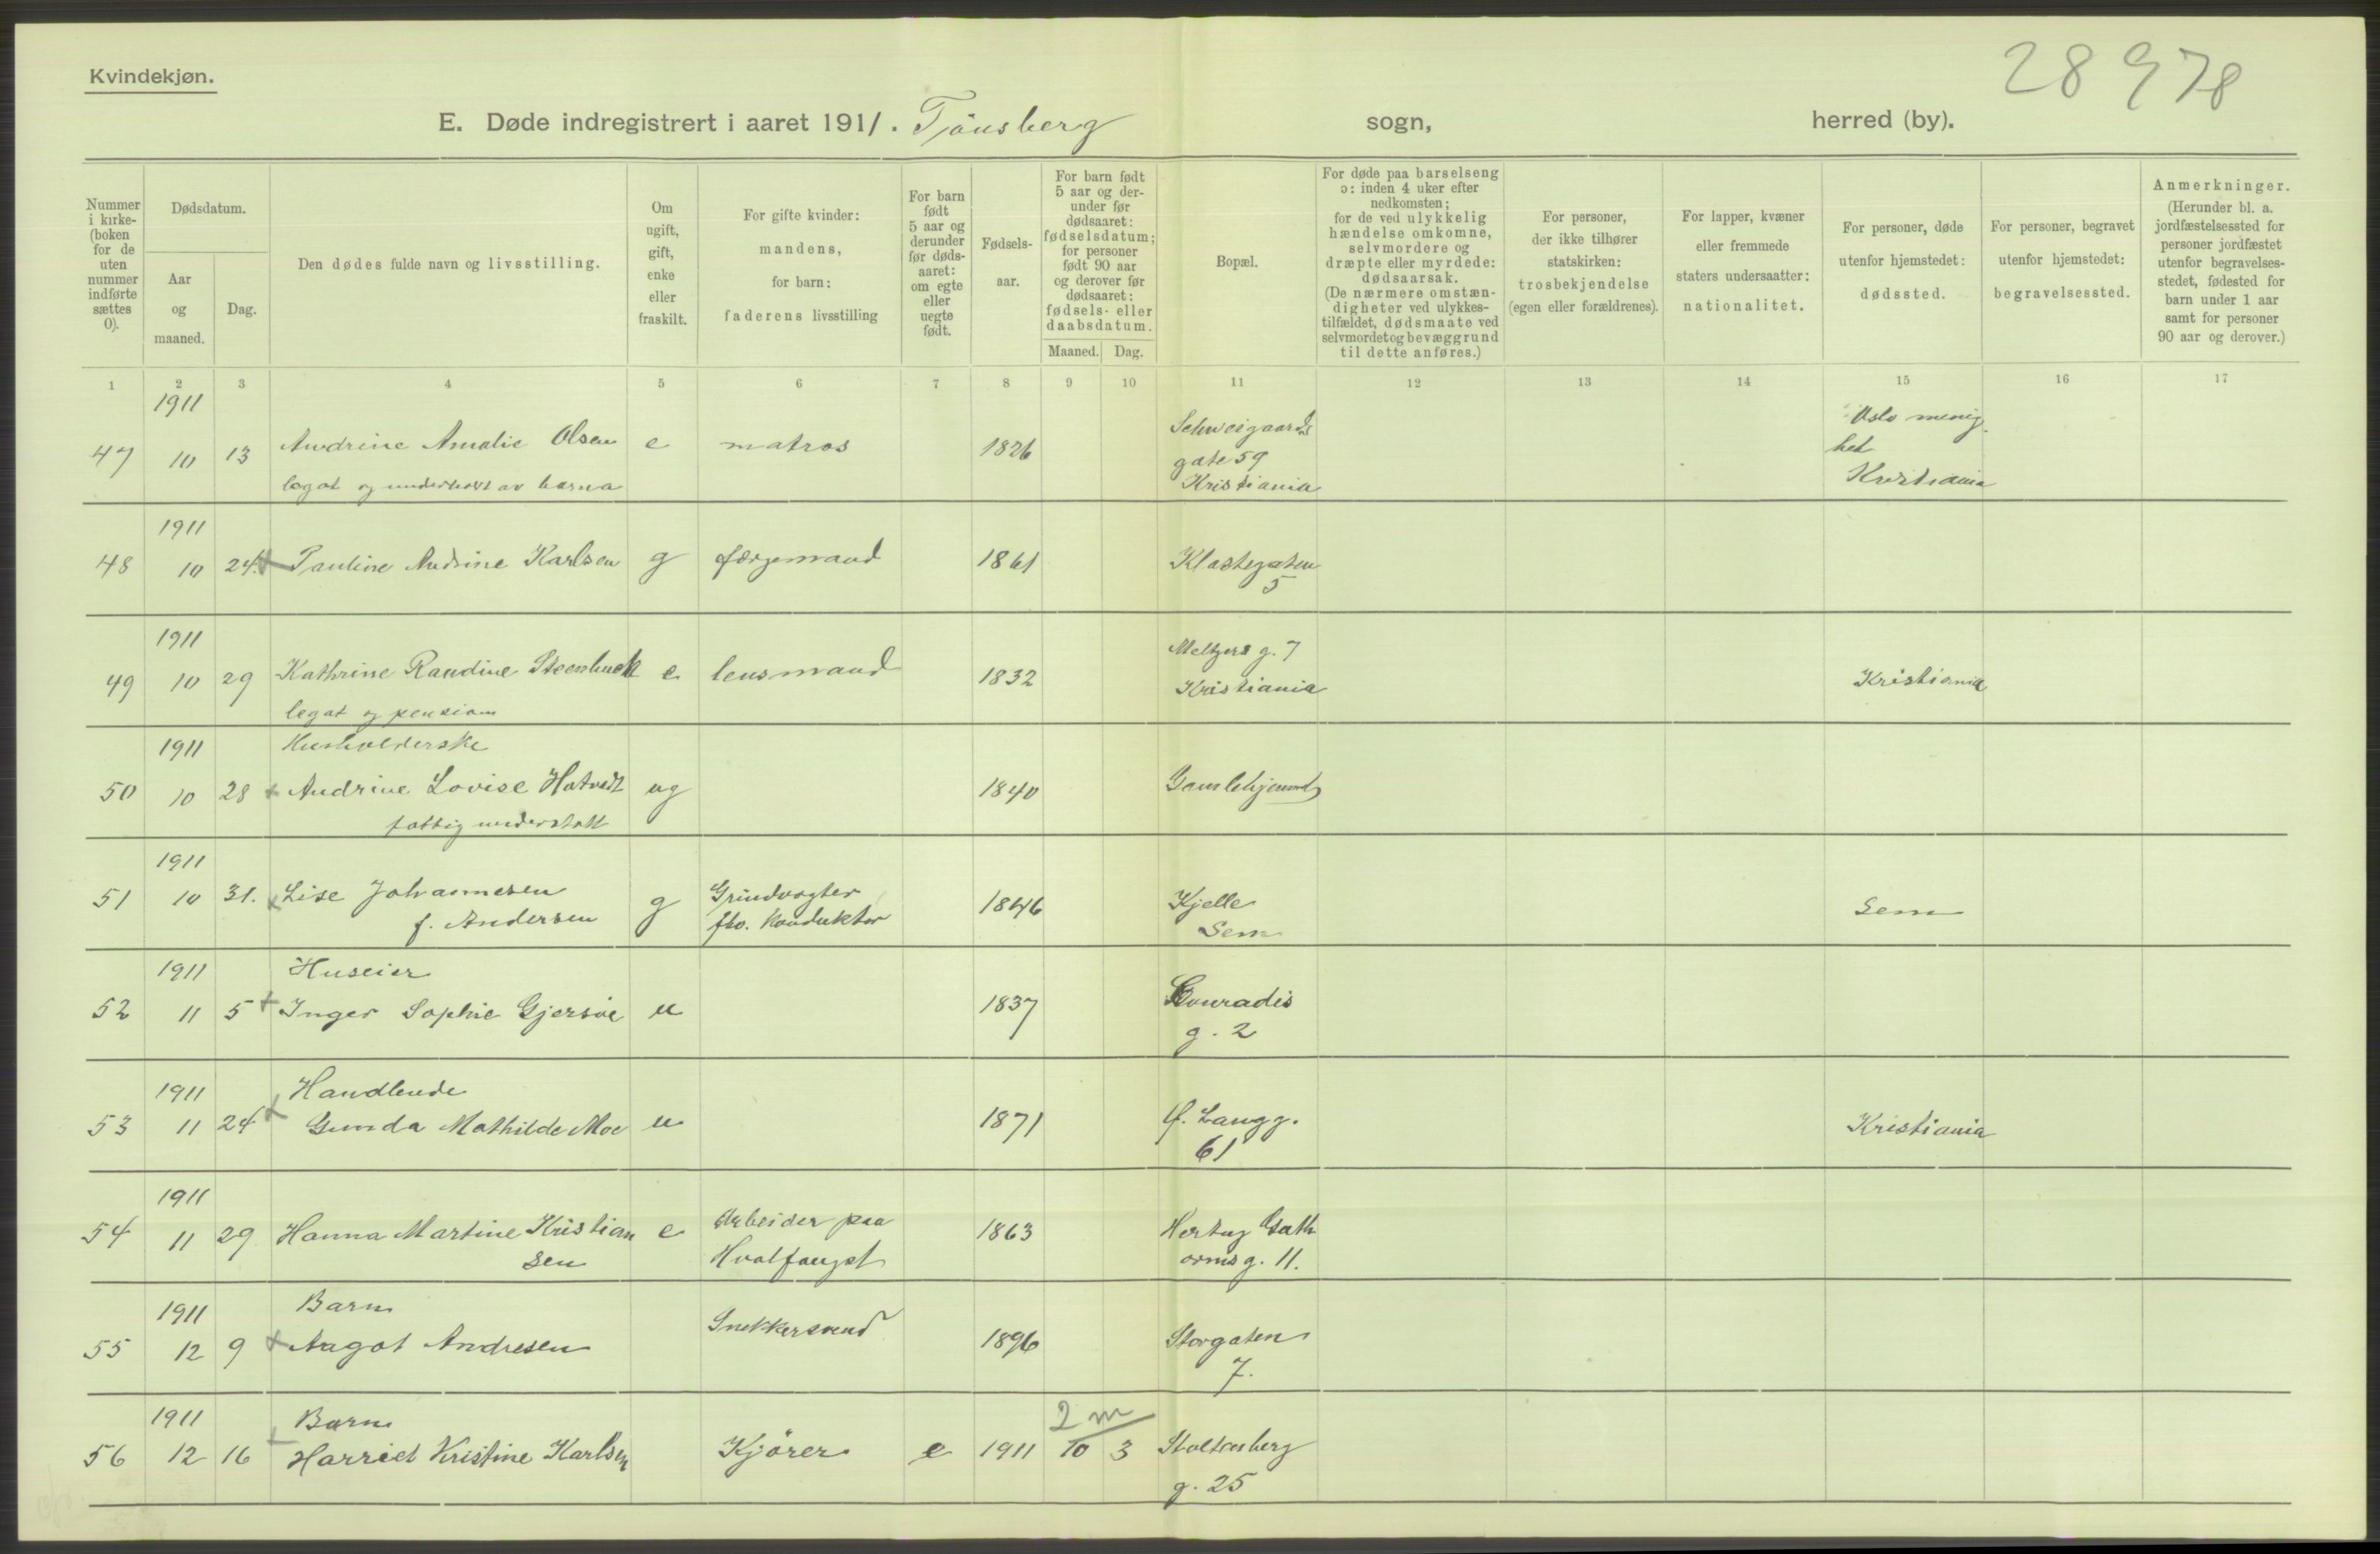 Kvindekjøn.
28 978
E. Døde indregistrert i aaret 1911. Tönsberg sogn, herred (by).
Nummer i kirke-(boken for de uten nummer indførte sættes 0).
Dødsdatum.
Aar og maaned.
Dag.
Den dødes fulde navn og livsstilling.
Om ugift, gift, enke eller fraskilt.
For gifte kvinder: mandens, for barn: faderens livsstilling
For barn født 5 aar og derunder før døds-aaret: om egte eller uegte født.
Fødsels-aar.
For barn født 5 aar og der-under før dødsaaret: fødselsdatum; for personer født 90 aar og derover før dødsaaret: fødsels- eller daabsdatum.
Maaned. Dag.
Bopæl.
For døde paa barselseng ɔ: inden 4 uker efter nedkomsten; for de ved ulykkelig hændelse omkomne, selvmordere og dræpte eller myrdede: dødsaarsak. (De nærmere omstæn-digheter ved ulykkes-tilfældet, dødsmaate ved selvmordet og bevæggrund til dette anføres.)
For personer, der ikke tilhører statskirken: trosbekjendelse (egen eller forældrenes).
For lapper, kvæner eller fremmede staters undersaatter: nationalitet.
For personer, døde utenfor hjemstedet: dødssted.
For personer, begravet utenfor hjemstedet: begravelsessted.
Anmerkninger. (Herunder bl. a. jordfæstelsessted for personer jordfæstet utenfor begravelses-stedet, fødested for barn under 1 aar samt for personer 90 aar og derover.)
1 2 3 4 5 6 7 8 9 10 11 12 13 14 15 16 17
1911
47 10 13 Andrine Amalie Olsen e matros 1826 Schweigaards gate 59 Kristiania Oslo menig-het Kristiania
legat og underhold av barna
1911
48 10 24 Pauline Andrine Karlsen g færgemand 1861 Klostegaten 5
1911
49 10 29 Kathrine Randine Steenbuck e lensmand 1832 Meltzers g. 7 Kristiania Kristiania
legat og pension
1911 Husholderske
50 10 28 Andrine Lovise Hotvedt ug 1840 Gamlehjemmet
fattig understøtt
1911
51 10 31. Lise Johannesen g Grindvogter 1846 Kjelle Sem Sem
f. Andersen fhv. Konduktør
1911 Huseier
52 11 5 Inger Sophie Gjersöe u 1837 Conradis g. 2
1911 Handlende
53 11 24 Gunda Mathilde Moe u 1871 Ø. Langg. 61 Kristiania
1911
54 11 29 Hanna Martine Kristian sen e Arbeider paa Hvalfangst 1863 Hertug Guth orms g. 11.
1911 Barn
55 12 9 Aagot Andresen Snekkersvend 1896 Storgaten 7.
1911 Barn 2 m
56 12 16 Harriet Kristine Karlsen Kjörer e 1911 10 3 Stoltenberg g. 25